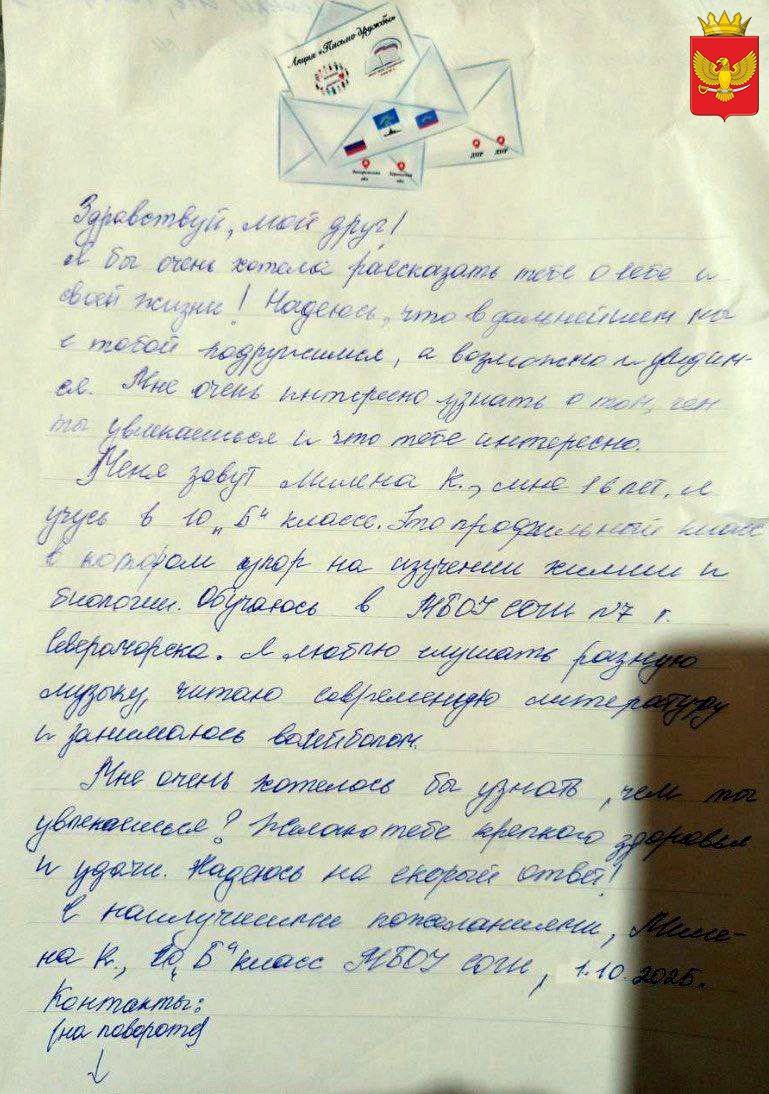 Акция «Письмо дружбы»
ДНР
ЛНР
Здравствуй, мой друг!
Я бы очень хотела рассказать тебе о себе и
своей жизни! Надеюсь, что в дальнейшем мы
с тобой подружимся, а возможно и увидим-
ся. Мне очень интересно узнать о том, чем
ты увлекаешься и что тебе интересно.
Меня зовут Милена К., мне 16 лет. Я
учусь в 10 „Б“ классе. Это профильный класс
в котором упор на изучении химии и
биологии. Обучаюсь в МБОУ СОШ №7 г.
Североморска. Я люблю слушать разную
музыку, читаю современную литературу
и занимаюсь волейболом.
Мне очень хотелось бы узнать, чем ты
увлекаешься? Желаю тебе крепкого здоровья
и удачи. Надеюсь на скорый ответ!
С наилучшими пожеланиями, Миле-
на К., 10 „Б“ класс МБОУ СОШ, 1.10.2025.
Контакты:
(на повороте)